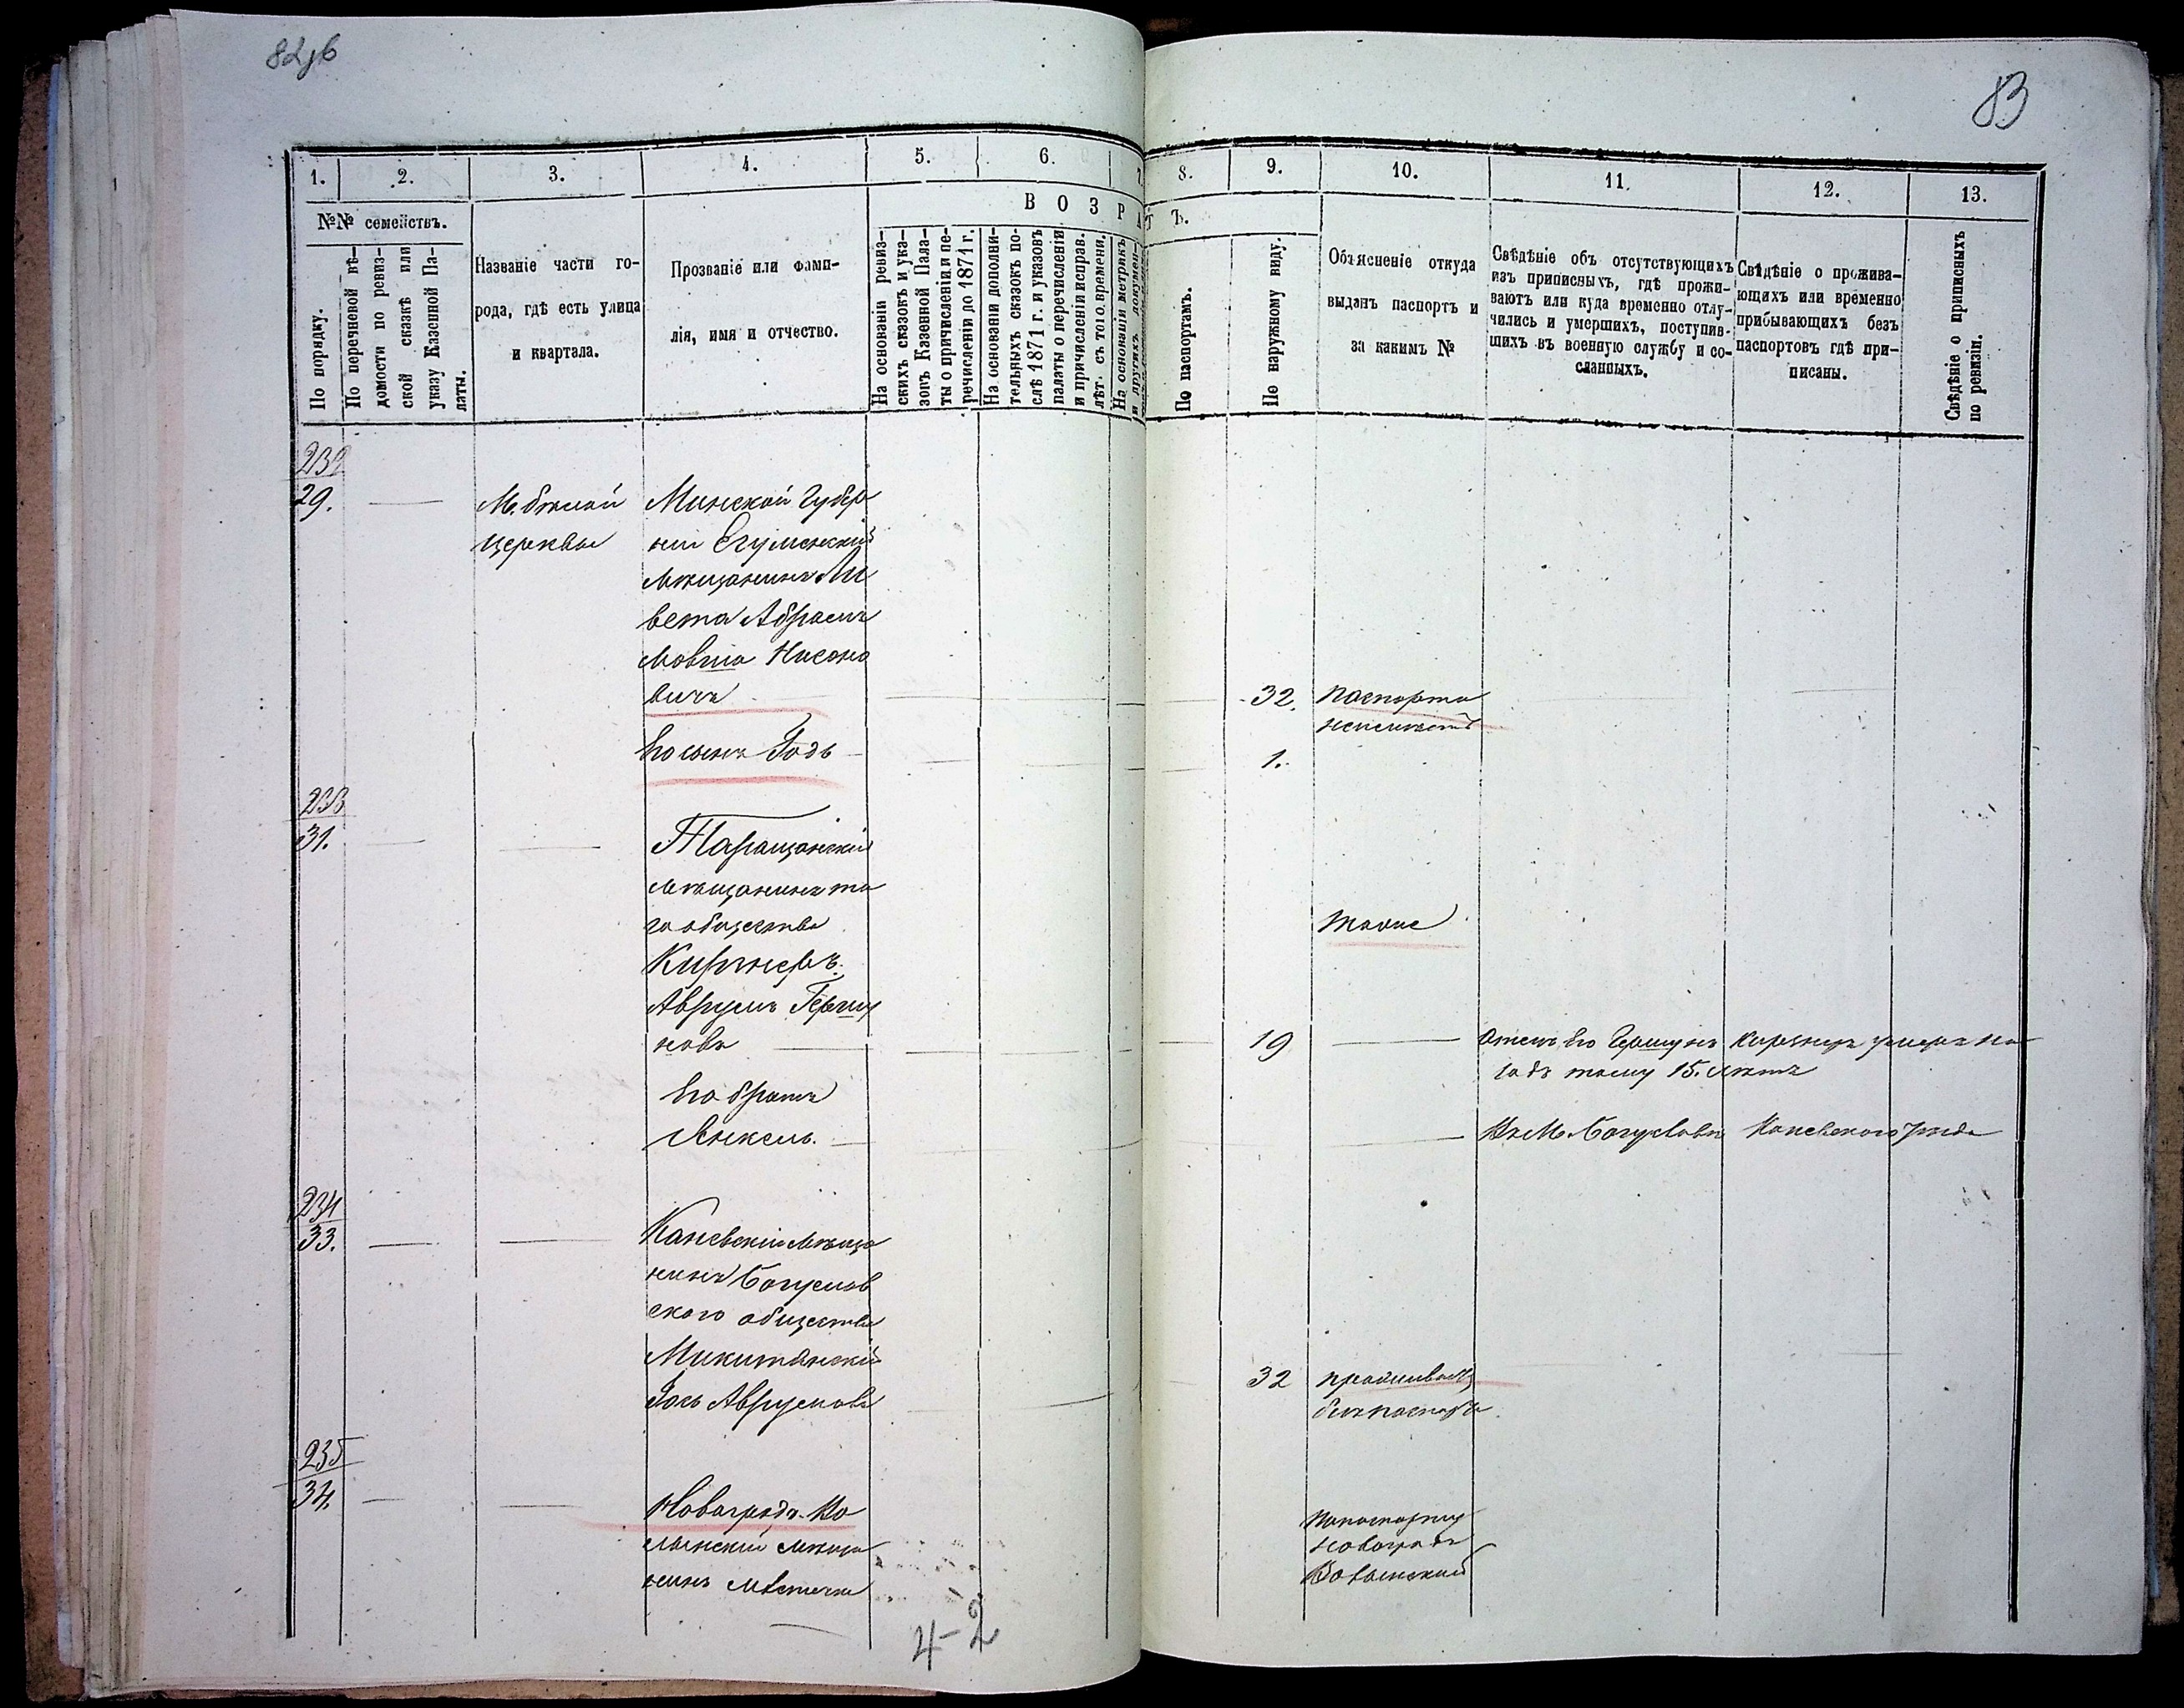 83
1.
2.
3.
4.
5.
6.
8.
9.
10.
11.
12.
13.
№№ семействъ.
ВОЗРА
ТЪ.
По порядку.
По перечневой вѣ-
домости по ревиз-
ской сказкѣ или
указу Казенной Па-
латы.
Названіе части го-
рода, гдѣ есть улица
и квартала.
Прозваніе или фами-
лія, имя и отчество.
На основаніи ревиз-
скихъ сказокъ и ука-
зовъ Казенной Пала-
ты о причисленіи и пе-
речисленіи до 1871 г.
На основаніи дополни-
тельныхъ сказокъ по-
слѣ 1871 г. и указовъ
палаты о перечисленіи
и причисленіи исправ.
лѣт. съ того времени.
На основаніи метрикъ
и другихъ документ-
По паспортамъ.
По наружному виду.
Объясненіе откуда
выданъ паспортъ и
за какимъ №
Свѣдѣніе объ отсутствующихъ
изъ приписныхъ, гдѣ прожи-
ваютъ или куда временно отлу-
чились и умершихъ, поступив-
шихъ въ военную службу и со-
сланныхъ.
Свѣдѣніе о прожива-
ющихъ или временно
прибывающихъ безъ
паспортовъ гдѣ при-
писаны.
Свѣдѣніе о приписныхъ
по ревизіи.
232
29.
М. бѣлой
церквы
Минской Губер
ніи Егуменскій
мѣщанинъ Ли
вета Абрамъ
Мовша Нисоно
вичъ
32.
паспорта
неимѣетъ
Его сынъ Годъ
1.
233
31.
Таращанскій
мѣщанинъ та
го общества
Киржнеръ
Аврумъ Гершу
новъ
такие
19
Отецъ его Гершунъ Киржнеръ умеръ на
задъ тому 15. лѣтъ
Его братъ
Янкель.
Въ М. Богуславѣ Каневского уѣзда
234
33.
Каневскій мѣща
нинъ Богуслав
ского общества
Микитянскій
Іось Аврумовъ
32
проживаетъ
безъ паспорта
235
34.
Новоградъ-Во
лынскій мѣща
нинъ мѣстечка
Попаспорту
новоградъ
Волынской
4-2